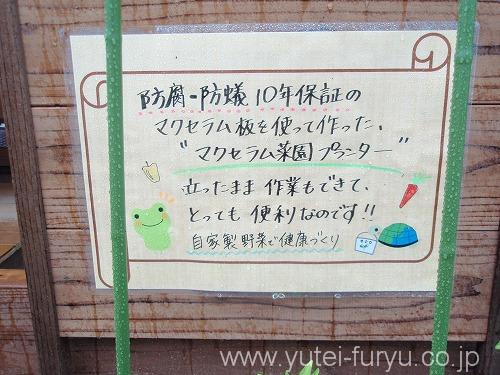 防腐・防蟻10年保証の
マクセラム板を使って作った、
"マクセラム菜園プランター"
立ったまま作業もできて、
とっても便利なのです!!
自家製野菜で健康づくり
www.yutei-furyu.co.jp